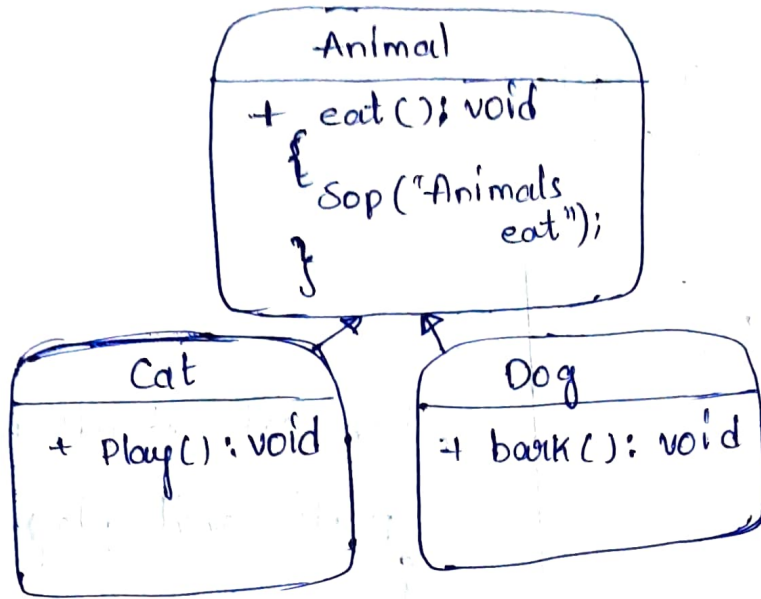 Animal
+ eat(): void
{
Sop("Animals
eat");
}
Cat
+ Play(): void
Dog
+ bark(): void